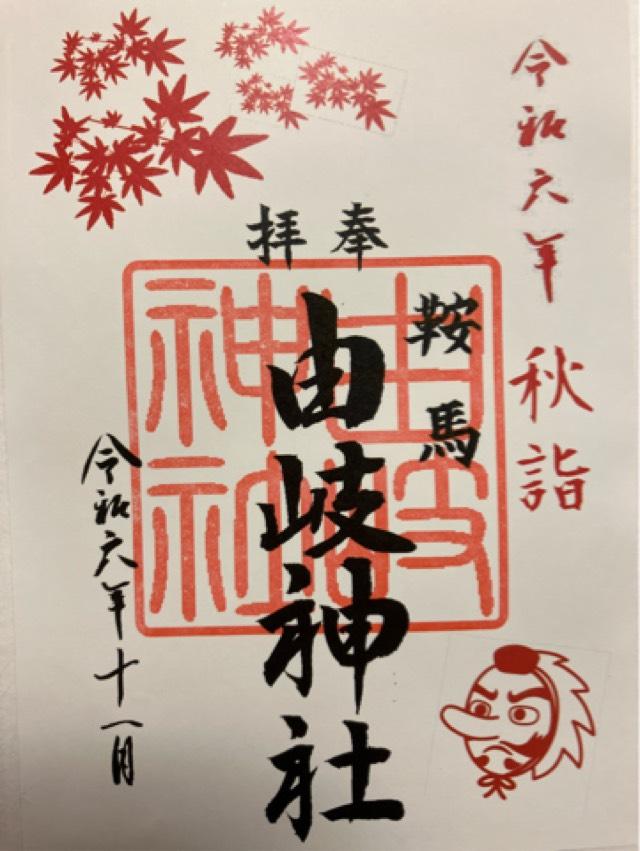 令和六年 秋詣
奉拝
鞍馬
由岐神社
令和六年十一月
由岐神社